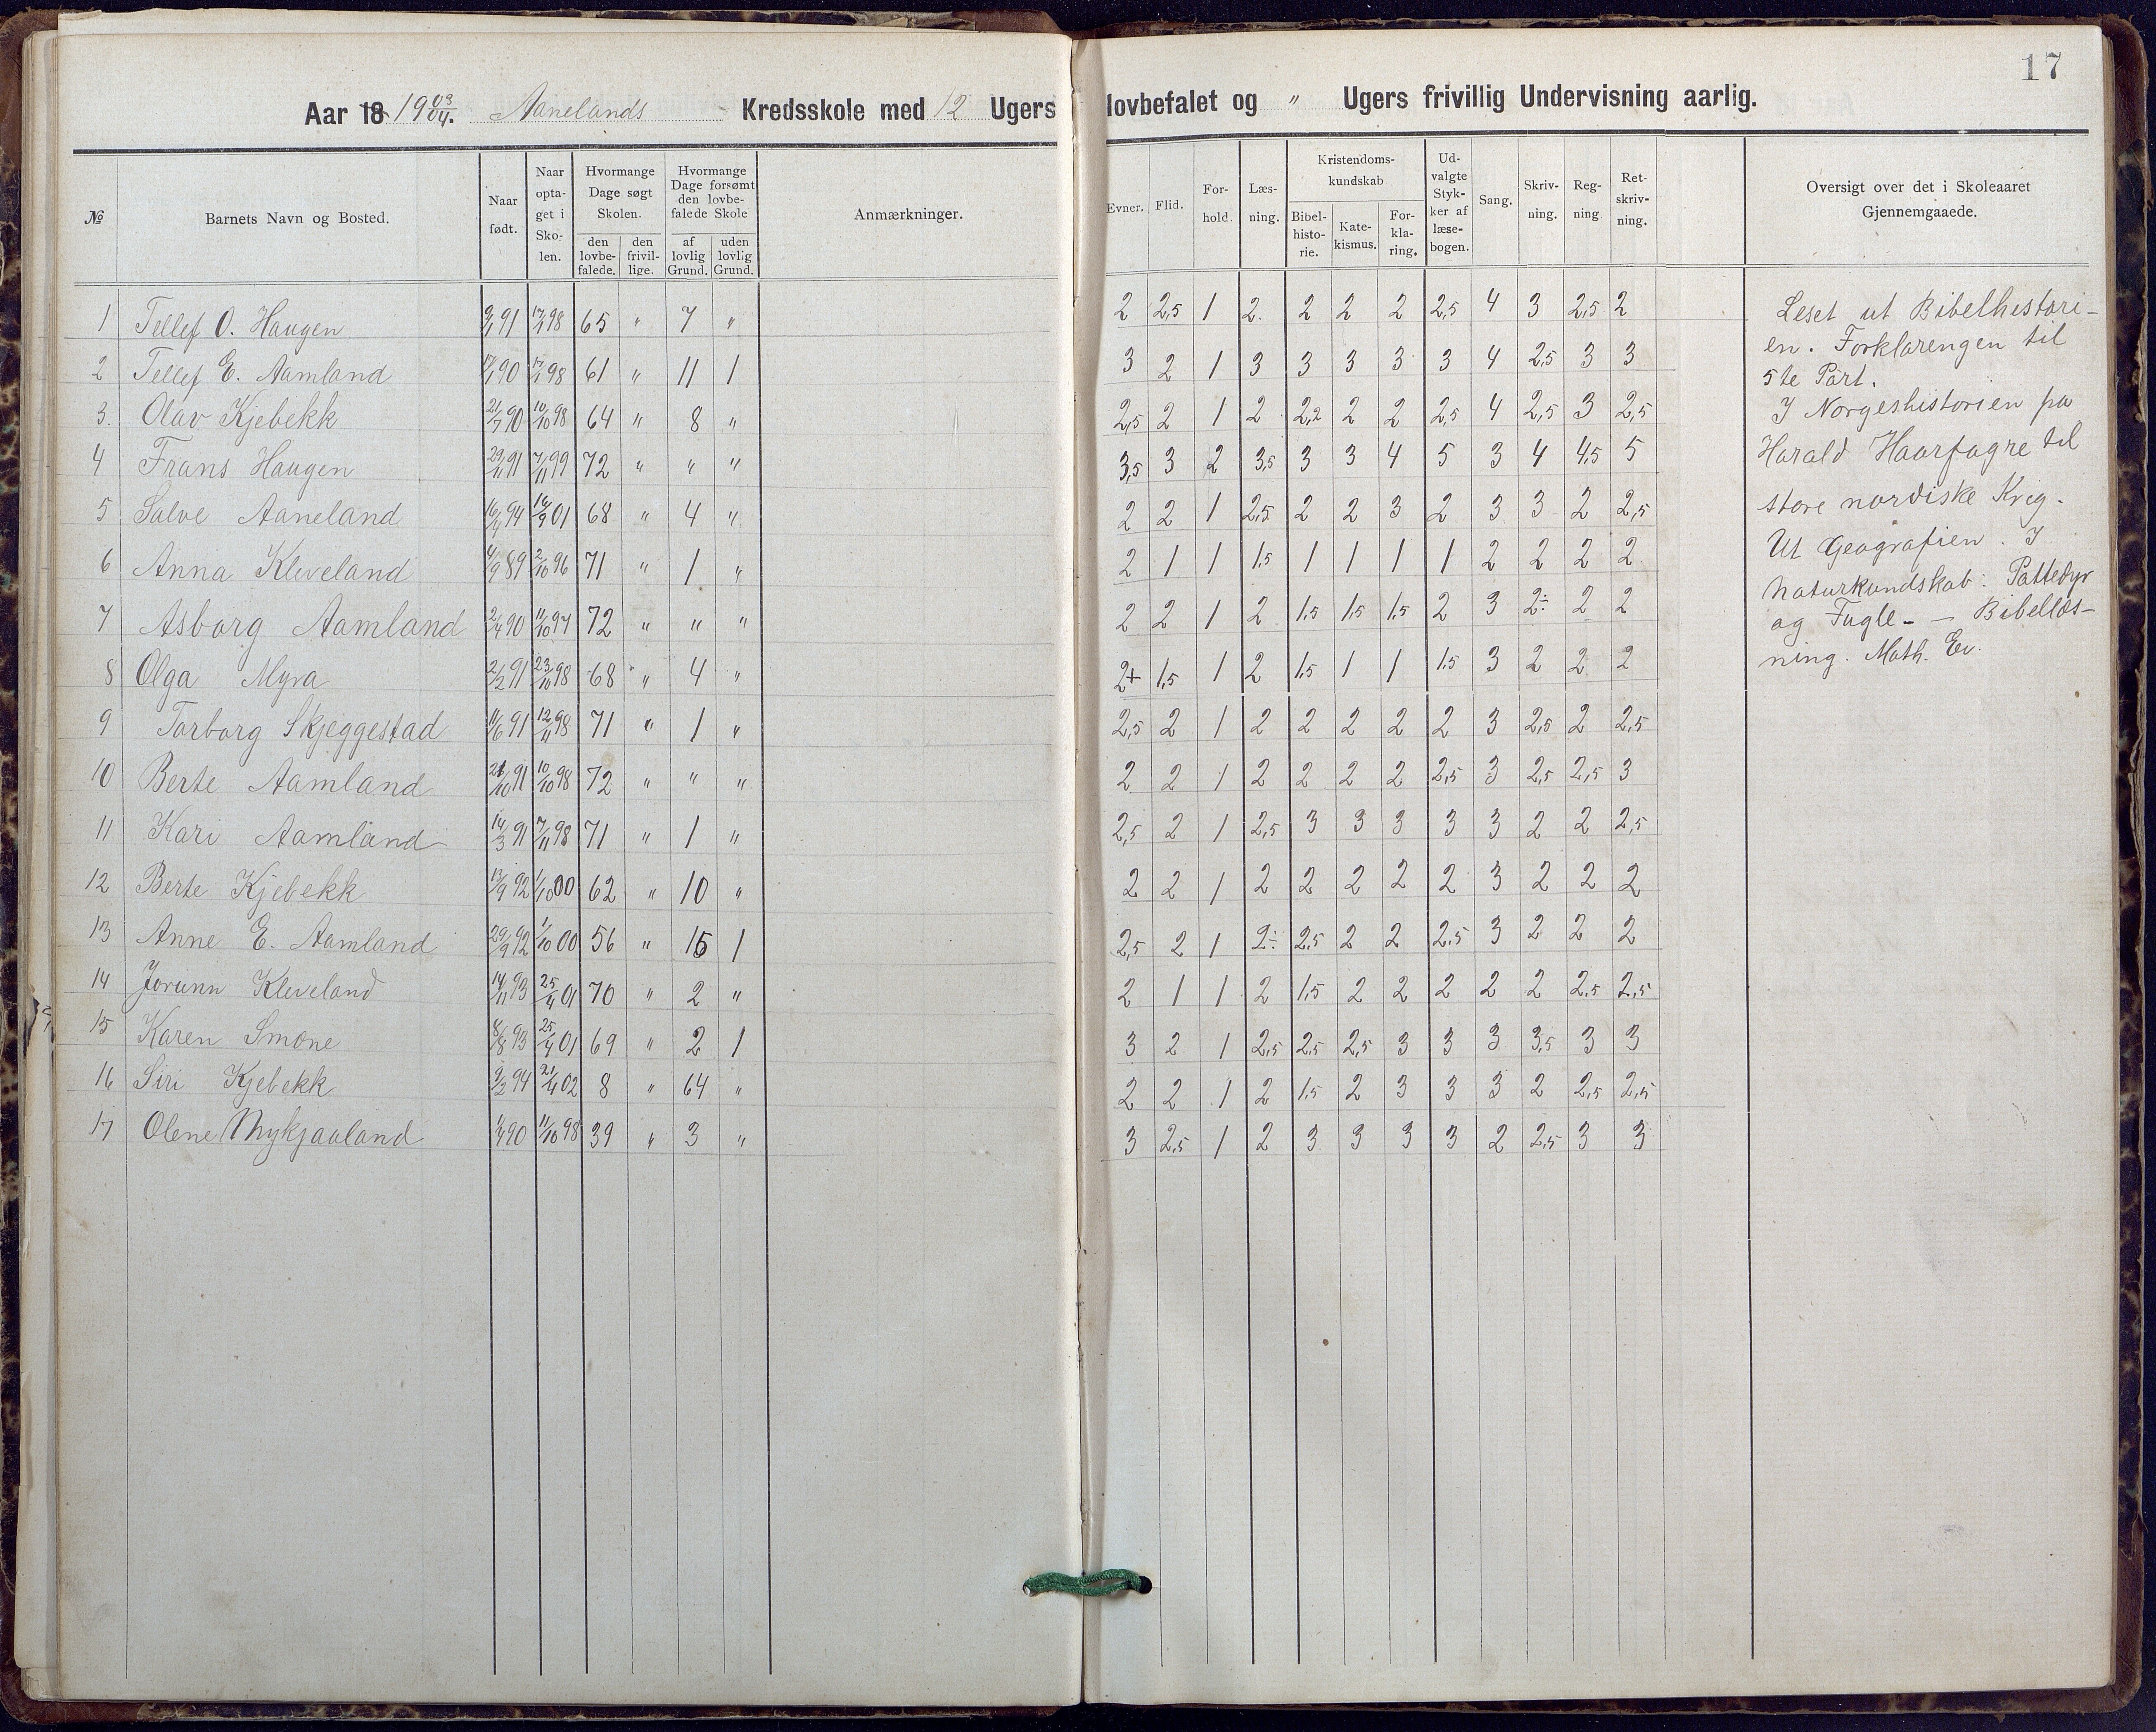 17
Aar 18 19 03/04. Aanelands Kredsskole med 12 Ugers lovbefalet og " Ugers frivillig Undervisning aarlig.
№ Barnets Navn og Bosted. Naar født. Naar optaget i Skolen. Hvormange Dage søgt Skolen. den lovbefalede. den frivillige. Hvormange Dage forsømt den lovbefalede Skole af lovlig Grund. uden lovlig Grund. Anmærkninger. Evner. Flid. Forhold. Læsning. Kristendomskundskab Bibelhistorie. Katekismus. Forklaring. Udvalgte Stykker af læsebogen. Sang. Skrivning. Regning Retskrivning. Oversigt over det i Skoleaaret Gjennemgaaede.
1 Tellef O. Haugen 91 98 65 " 7 " 2 2,5 1 2. 2 2 2 2,5 4 3 2,5 2
2 Tellef E. Aamland 90 98 61 " 11 1 3 2 1 3 3 3 3 3 4 2,5 3 3
3. Olav Kjebekk 21/7 90 10/10 98 64 " 8 " 2,5 2 1 2 2,2 2 2 2,5 4 2,5 3 2,5
4 Frans Haugen 29/11 91 7/11 99 72 " " " 3,5 3 2 3,5 3 3 4 5 3 4 4,5 5
5 Salve Aaneland 94 16/9 01 68 " 4 " 2 2 1 2,5 2 2 3 2 3 3 2 2,5
6 Anna Kleveland 4/9 89 2/10 96 71 " 1 " 2 1 1 1,5 1 1 1 1 2 2 2 2
7 Asborg Aamland 2/4 90 11/10 97 72 " " " 2 2 1 2 1,5 1,5 1,5 2 3 2÷ 2 2
8 Olga Myra 2/2 91 23/10 98 68 " 4 " 2+ 1,5 1 2 1,5 1 1 1,5 3 2 2 2
9 Torborg Skjeggestad 11/6 91 12/11 98 71 " 1 " 2,5 2 1 2 2 2 2 2 3 2,5 2 2,5
10 Berte Aamland 21/10 91 10/10 98 72 " " " 2 2 1 2 2 2 2 2,5 3 2,5 2,5 3
11 Kari Aamland 14/3 91 7/11 98 71 " 1 " 2,5 2 1 2,5 3 3 3 3 3 2 2 2,5
12 Berte Kjebekk 13/9 92 1/10 00 62 " 10 " 2 2 1 2 2 2 2 2 3 2 2 2
13 Anne E. Aamland 29/9 92 1/10 00 56 " 15 1 2,5 2 1 2÷ 2,5 2 2 2,5 3 2 2 2
14 Jorunn Kleveland 14/11 93 25/4 01 70 " 2 " 2 1 1 2 1,5 2 2 2 2 2 2,5 2,5
15 Karen Smone 8/8 93 25/4 01 69 " 2 1 3 2 1 2,5 2,5 2,5 3 3 3 3,5 3 3
16 Siri Kjebekk 9/2 94 21/4 02 8 " 64 " 2 2 1 2 1,5 2 3 3 3 2 2,5 2,5
17 Olene Mykjaaland 1/4 90 11/10 98 39 " 3 " 3 2,5 1 2 3 3 3 3 2 2,5 3 3
Leset ut Bibelhistori-
en. Forklarengen til
5te Part.
I Norgeshistorien fra
Harald Haarfagre til
store nordiske Krig.
Ut Geografien. I
Naturkundskab: Pattedyr
og Fugle. — Bibellæs-
ning. Math. Ev.